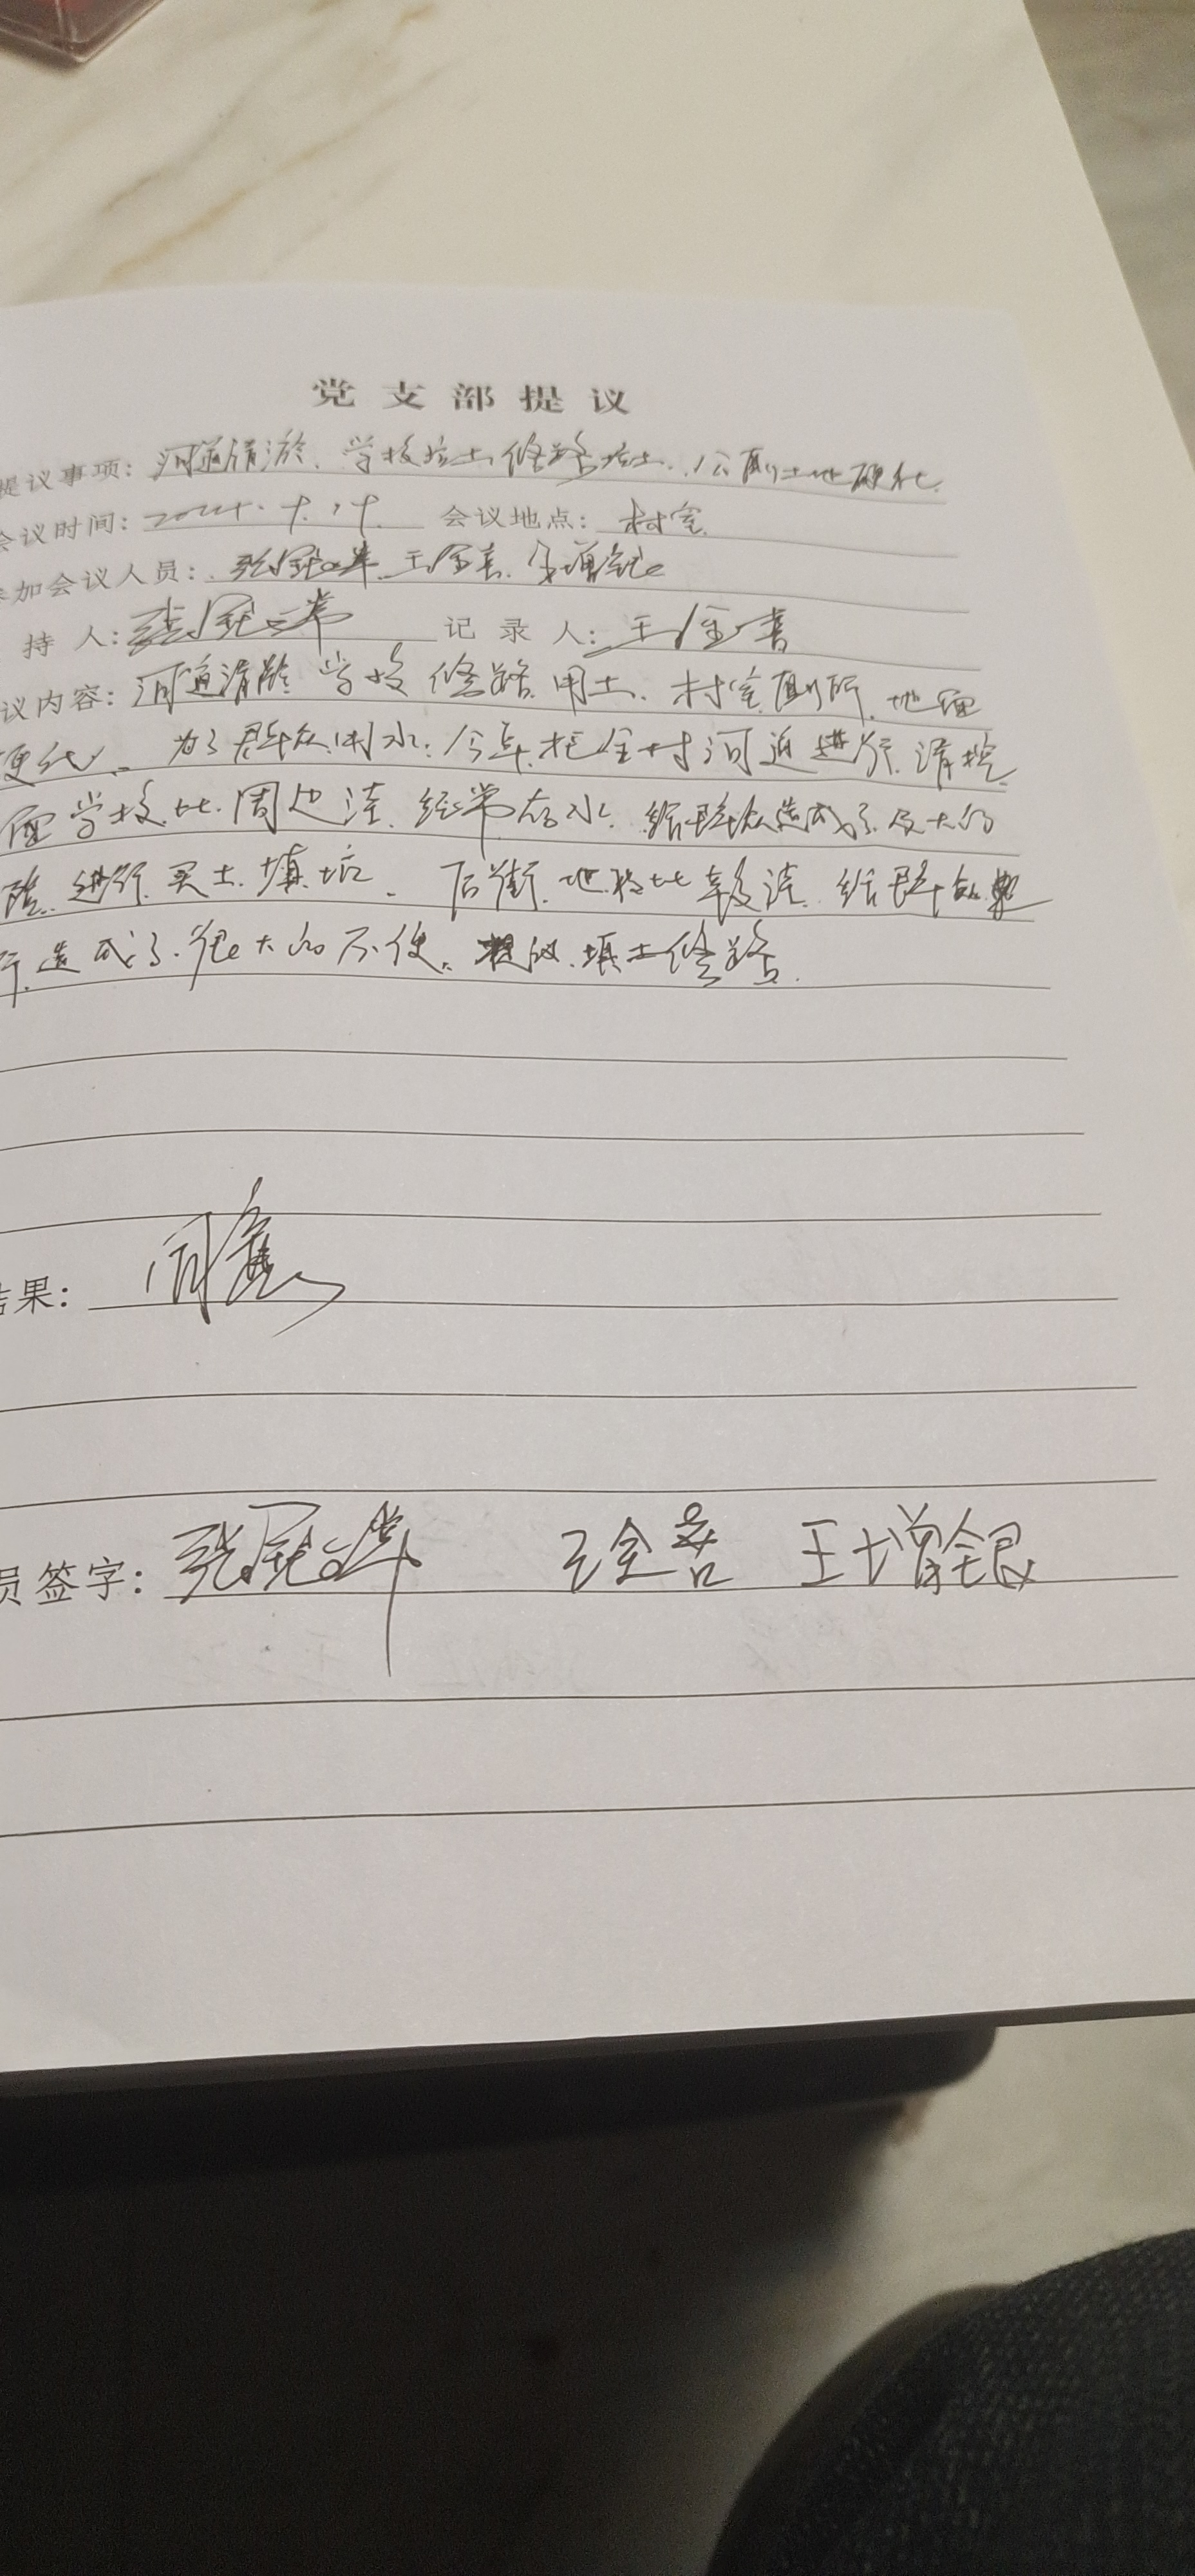 党支部提议
提议事项：河道清淤、学校拉土修路拉土、公厕土地硬化
会议时间： 会议地点：村室
参加会议人员：
持人： 记录人：王金喜
议内容：河道清淤 学校 修路 用土、村室厕所 地面
硬化。为了群众 水：今年把全村河道进行清挖
面学校比周边洼 经常存水 给群众造成了 大的
进行买土填坑、后街地 比较洼 给群众
造成了很大的不便。提议填土修路
结果：同意
员签字： 王金喜 王增银